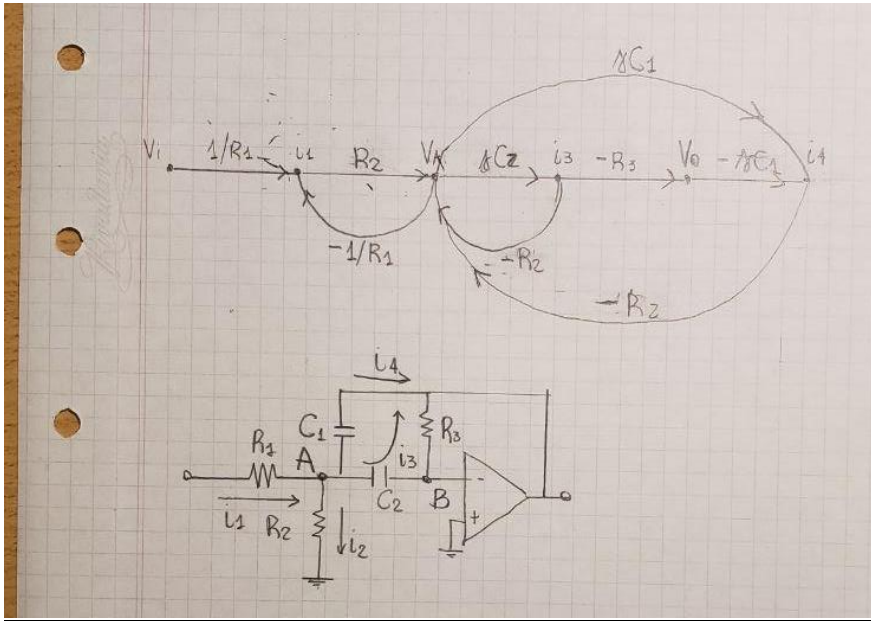 sC1
Vi 1/R1 i1 R2 VA sC2 i3 -R3 Vo -sC1 i4
-1/R1 -R2
-R2
i4
C1 R3
R1 A i3
C2 B -
i1 R2 i2 +